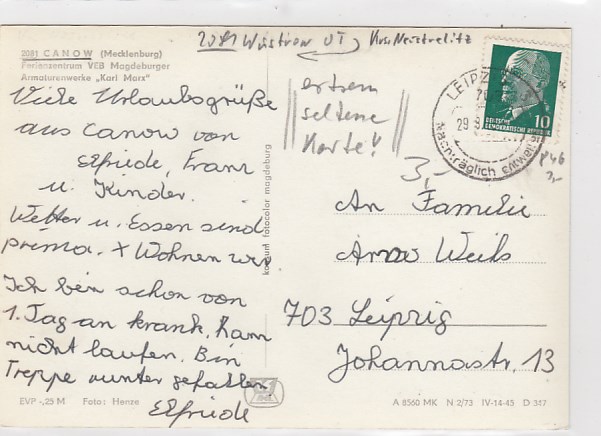 2081 Wustrow OT, Krs. Neustrelitz
2081 CANOW (Mecklenburg)
Ferienzentrum VEB Magdeburger
Armaturenwerke „Karl Marx"
Viele Urlaubsgrüße
aus Canow von
Elfriede, Franz
u. Kinder.
Wetter u. Essen sind
prima. + Wohnen wir
Ich bin schon von
1. Tag an krank, kann
nicht laufen. Bin
Treppe runter gefallen
Elfriede
EVP -,25 M Foto: Henze
konsum fotocolor magdeburg
extrem
seltene
Karte!
3,-
LEIPZ
29.9.
Nachträglich entwertet
DEUTSCHE
DEMOKRATISCHE REPUBLIK
10
P46
3,-
An Familie
Weils
703 Leipzig
Johannastr. 13
A 8560 MK N 2/73 IV-14-45 D 347